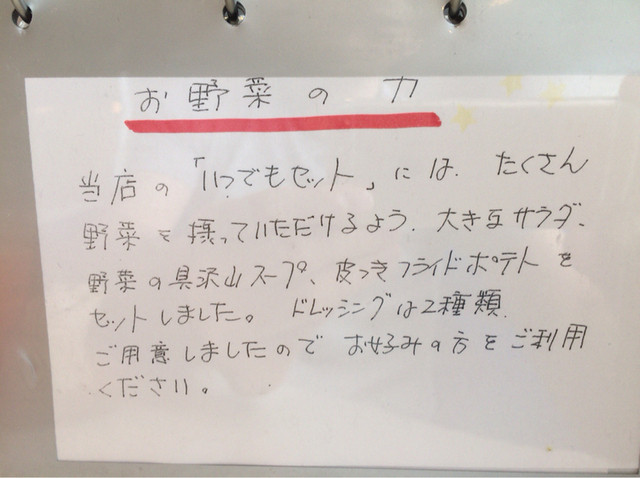 お野菜の力
当店の「いつでもセット」には、たくさん
野菜を摂っていただけるよう、大きなサラダ、
野菜の具沢山スープ、皮つきフライドポテトを
セットしました。ドレッシングは2種類
ご用意しましたので お好みの方をご利用
ください。